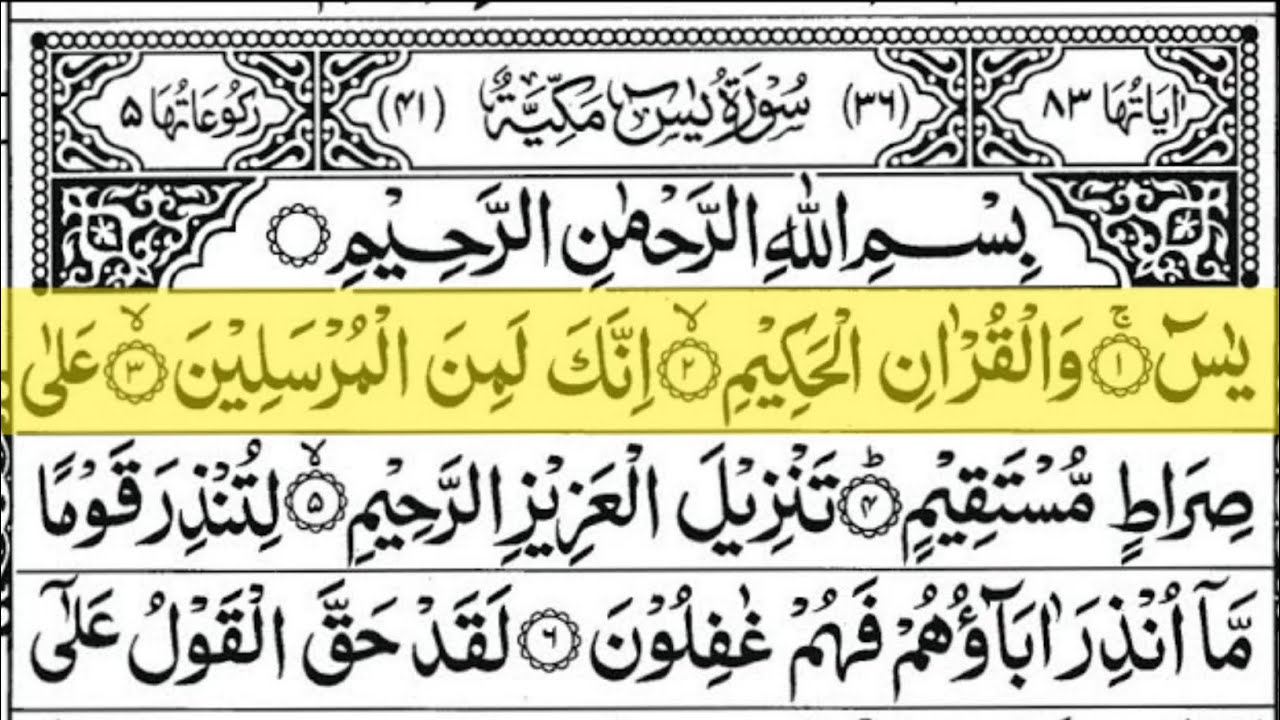 اٰيَاتُهَا ٨٣ (٣٦) سُوْرَةُ يٰسٓ مَكِّيَّةٌ (٤١) رُكُوْعَاتُهَا ٥
بِسْمِ اللّٰهِ الرَّحْمٰنِ الرَّحِيْمِ
يٰسٓ ۚ﴿١﴾ وَالْقُرْاٰنِ الْحَكِيْمِ ۙ﴿٢﴾ اِنَّكَ لَمِنَ الْمُرْسَلِيْنَ ۙ﴿٣﴾ عَلٰى
صِرَاطٍ مُّسْتَقِيْمٍ ؕ﴿۴﴾ تَنْزِيْلَ الْعَزِيْزِ الرَّحِيْمِ ۙ﴿۵﴾ لِتُنْذِرَ قَوْمًا
مَّاۤ اُنْذِرَ اٰبَآؤُهُمْ فَهُمْ غٰفِلُوْنَ ﴿٦﴾ لَقَدْ حَقَّ الْقَوْلُ عَلٰٓى